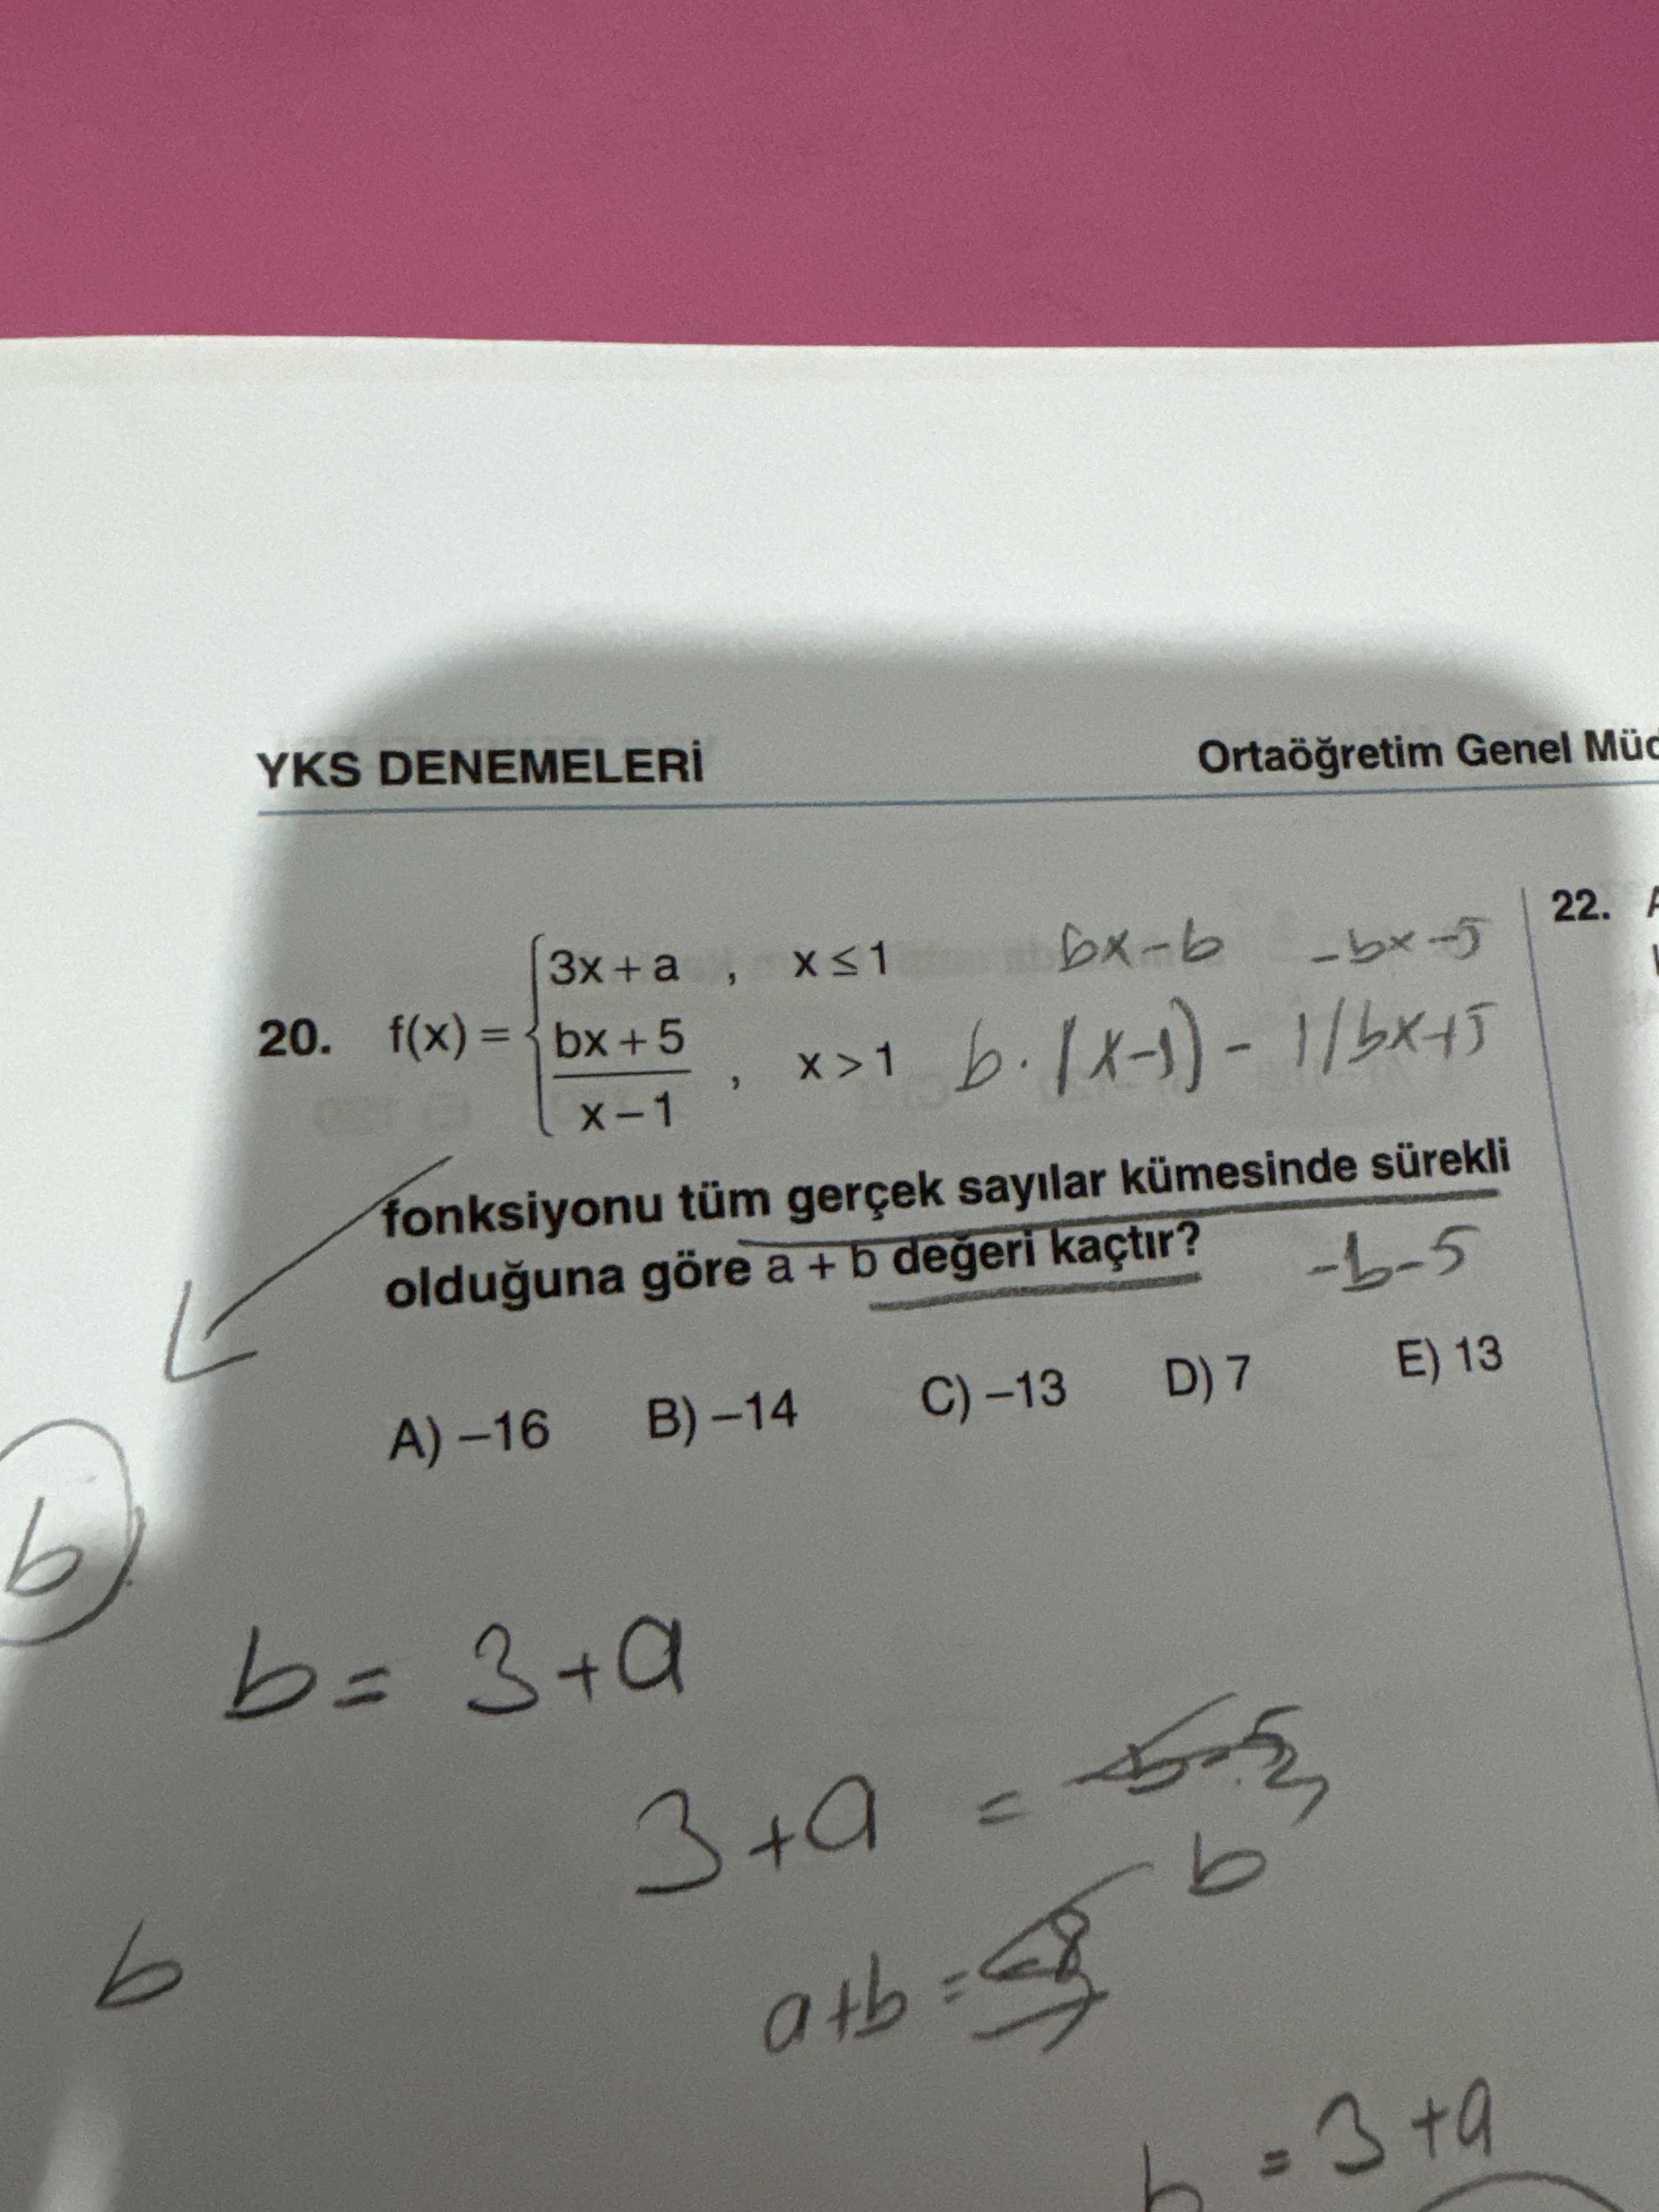 YKS DENEMELERİ
Ortaöğretim Genel Müd
20. f(x) = { 3x + a , x ≤ 1
bx + 5 / x − 1 , x > 1
bx-b -bx-5
b.(x-1) - 1/bx+5
22.
fonksiyonu tüm gerçek sayılar kümesinde sürekli
olduğuna göre a + b değeri kaçtır?
-b-5
A) −16 B) −14 C) −13 D) 7 E) 13
b
b = 3+a
3+a =
b
b
a+b = -8
b = 3+a